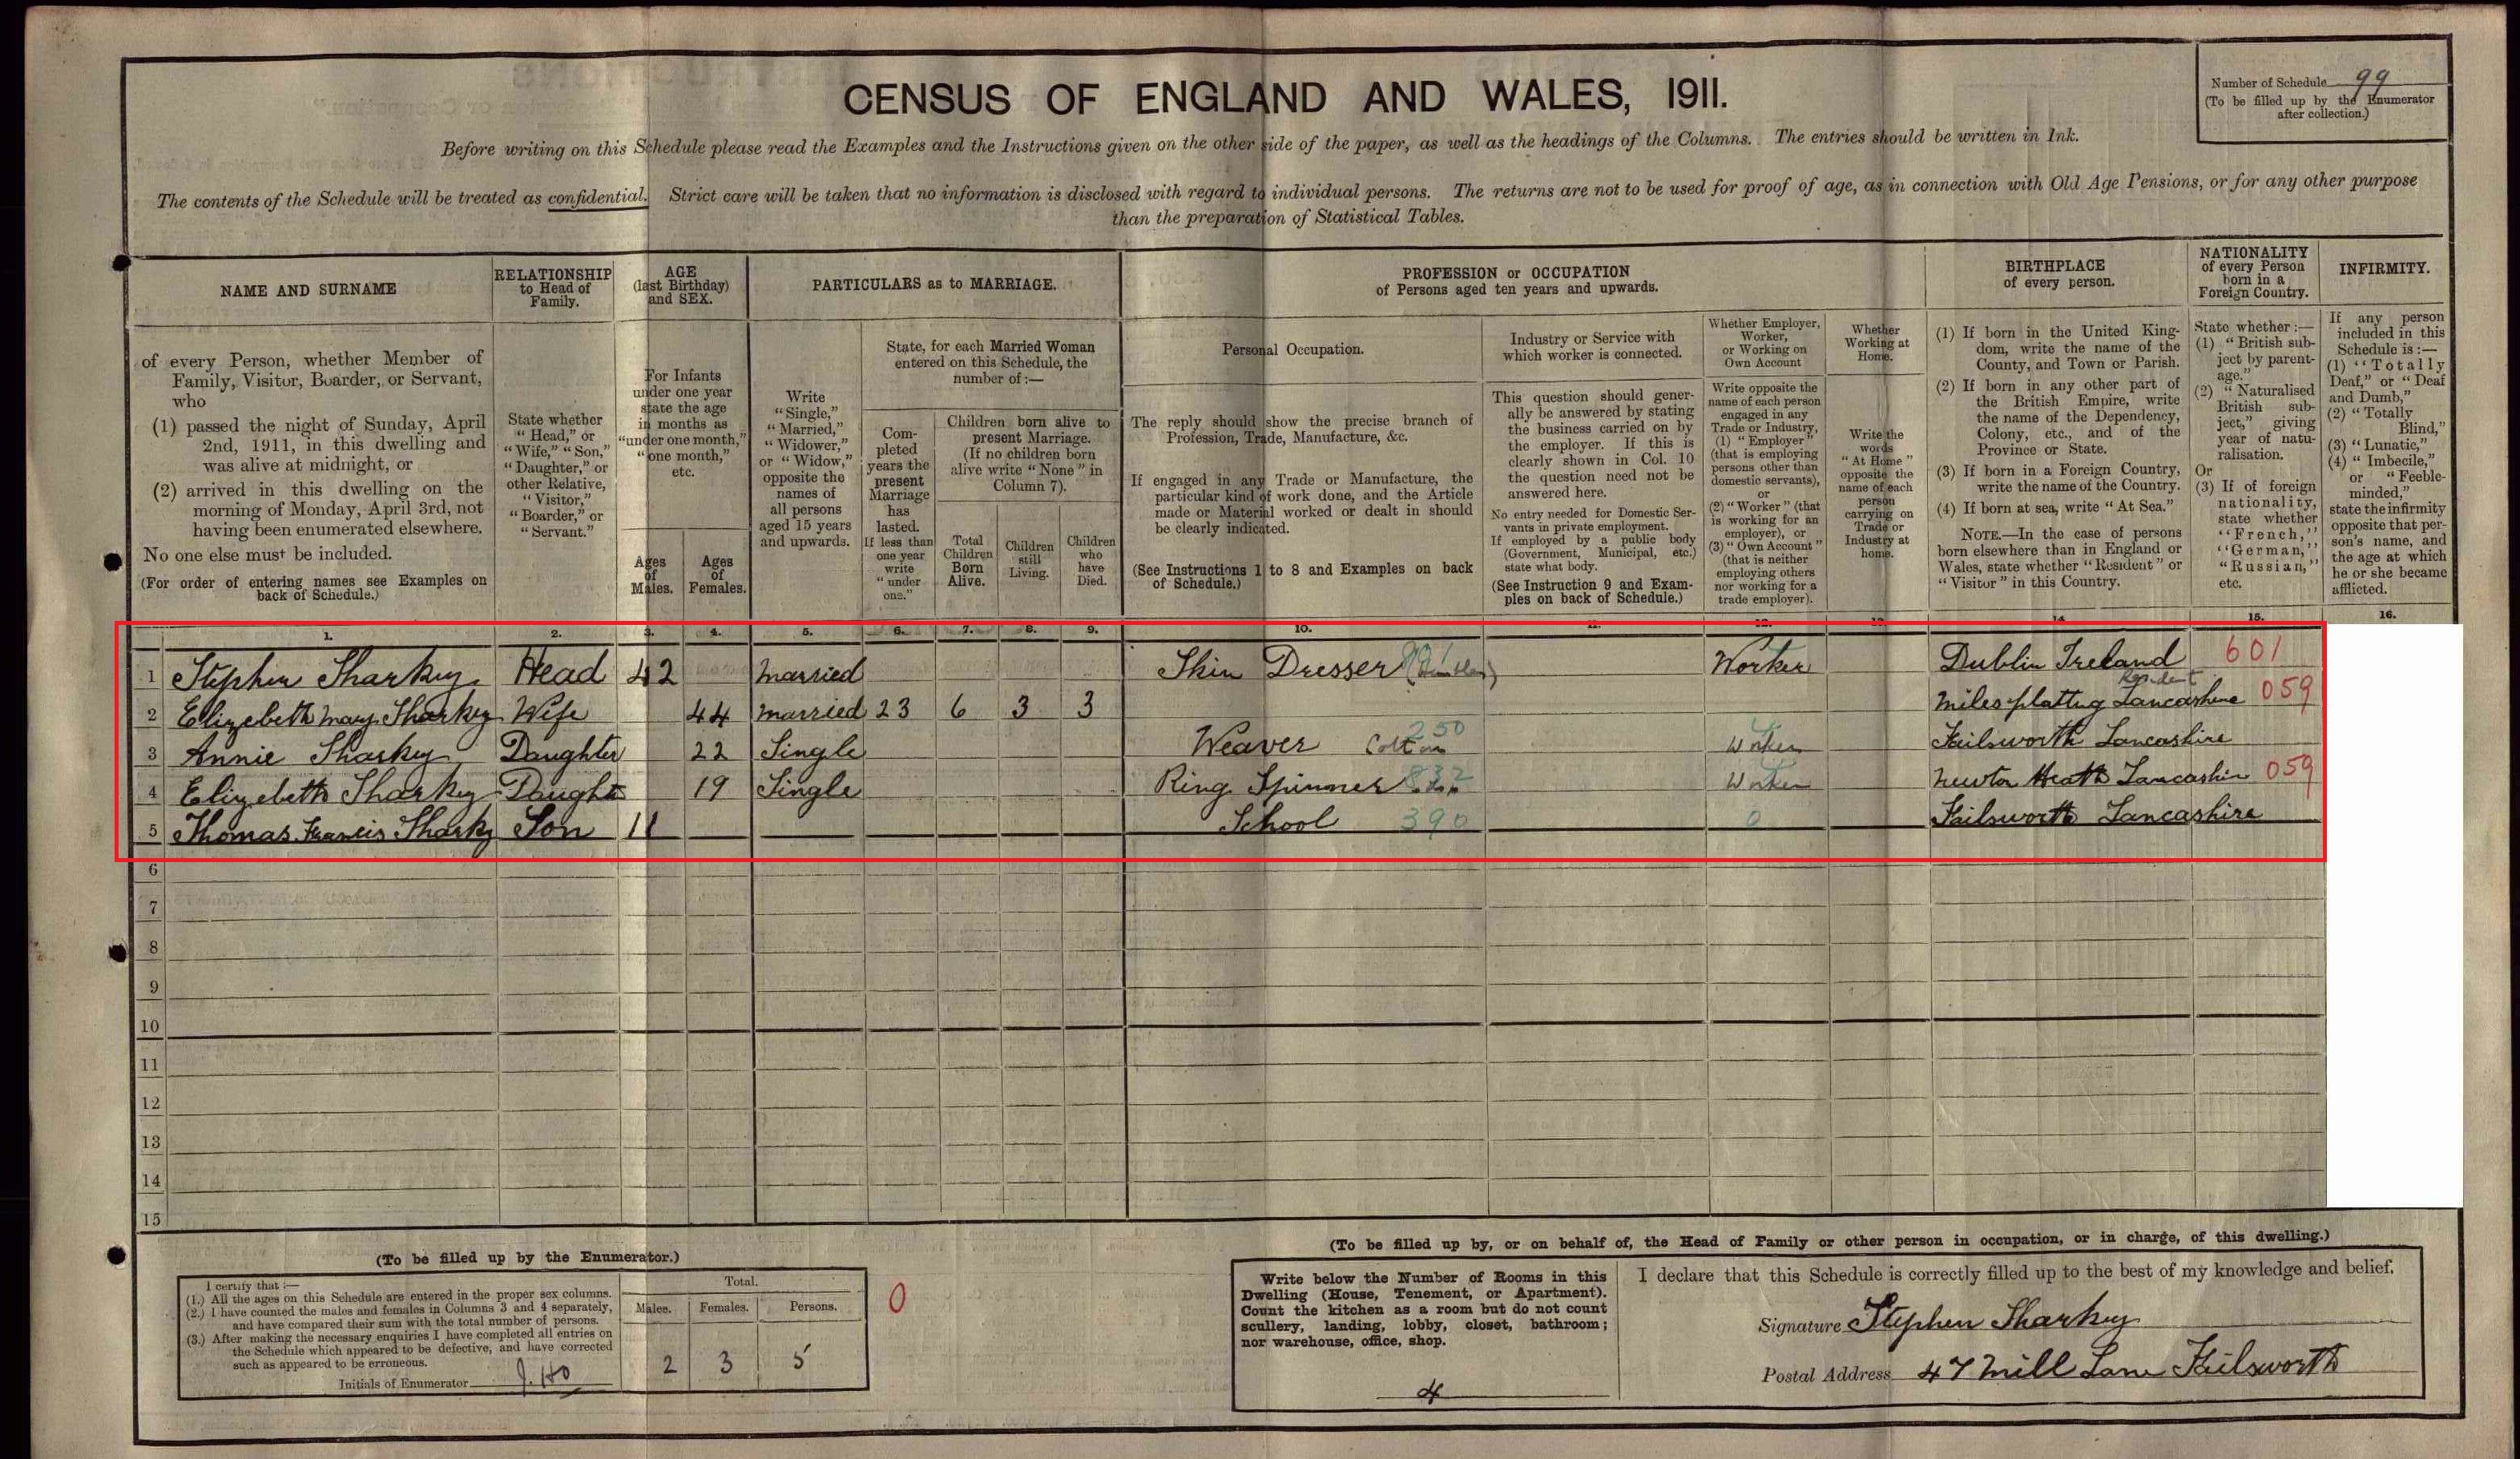 CENSUS OF ENGLAND AND WALES, 1911.
Number of Schedule 99
(To be filled up by the Enumerator
after collection.)
Before writing on this Schedule please read the Examples and the Instructions given on the other side of the paper, as well as the headings of the Columns. The entries should be written in Ink.
The contents of the Schedule will be treated as confidential. Strict care will be taken that no information is disclosed with regard to individual persons. The returns are not to be used for proof of age, as in connection with Old Age Pensions, or for any other purpose
than the preparation of Statistical Tables.
NAME AND SURNAME
of every Person, whether Member of
Family, Visitor, Boarder, or Servant,
who
(1) passed the night of Sunday, April
2nd, 1911, in this dwelling and
was alive at midnight, or
(2) arrived in this dwelling on the
morning of Monday, April 3rd, not
having been enumerated elsewhere.
No one else must be included.
(For order of entering names see Examples on
back of Schedule.)
RELATIONSHIP
to Head of
Family.
State whether
"Head," or
"Wife," "Son,"
"Daughter," or
other Relative,
"Visitor,"
"Boarder," or
"Servant."
AGE
(last Birthday)
and SEX.
For Infants
under one year
state the age
in months as
"under one month,"
"one month,"
etc.
Ages
of
Males.
Ages
of
Females.
PARTICULARS as to MARRIAGE.
Write
"Single,"
"Married,"
"Widower,"
or "Widow,"
opposite the
names of
all persons
aged 15 years
and upwards.
State, for each Married Woman
entered on this Schedule, the
number of:—
Com-
pleted
years the
present
Marriage
has
lasted.
If less than
one year
write
"under
one."
Children born alive to
present Marriage.
(If no children born
alive write "None" in
Column 7).
Total
Children
Born
Alive.
Children
still
Living.
Children
who
have
Died.
PROFESSION or OCCUPATION
of Persons aged ten years and upwards.
Personal Occupation.
The reply should show the precise branch of
Profession, Trade, Manufacture, &c.
If engaged in any Trade or Manufacture, the
particular kind of work done, and the Article
made or Material worked or dealt in should
be clearly indicated.
(See Instructions 1 to 8 and Examples on back
of Schedule.)
Industry or Service with
which worker is connected.
This question should gener-
ally be answered by stating
the business carried on by
the employer. If this is
clearly shown in Col. 10
the question need not be
answered here.
No entry needed for Domestic Ser-
vants in private employment.
If employed by a public body
(Government, Municipal, etc.)
state what body.
(See Instruction 9 and Exam-
ples on back of Schedule.)
Whether Employer,
Worker,
or Working on
Own Account
Write opposite the
name of each person
engaged in any
Trade or Industry,
(1) "Employer"
(that is employing
persons other than
domestic servants),
or
(2) "Worker" (that
is working for an
employer), or
(3) "Own Account"
(that is neither
employing others
nor working for a
trade employer).
Whether
Working at
Home.
Write the
words
"At Home"
opposite the
name of each
person
carrying on
Trade or
Industry at
home.
BIRTHPLACE
of every person.
(1) If born in the United King-
dom, write the name of the
County, and Town or Parish.
(2) If born in any other part of
the British Empire, write
the name of the Dependency,
Colony, etc., and of the
Province or State.
(3) If born in a Foreign Country,
write the name of the Country.
(4) If born at sea, write "At Sea."
NOTE.—In the case of persons
born elsewhere than in England or
Wales, state whether "Resident" or
"Visitor" in this Country.
NATIONALITY
of every Person
born in a
Foreign Country.
State whether:—
(1) "British sub-
ject by parent-
age."
(2) "Naturalised
British sub-
ject," giving
year of natu-
ralisation.
Or
(3) If of foreign
nationality,
state whether
"French,"
"German,"
"Russian,"
etc.
INFIRMITY.
If any person
included in this
Schedule is:—
(1) "Totally
Deaf," or "Deaf
and Dumb,"
(2) "Totally
Blind,"
(3) "Lunatic,"
(4) "Imbecile,"
or "Feeble-
minded,"
state the infirmity
opposite that per-
son's name, and
the age at which
he or she became
afflicted.
1. 2. 3. 4. 5. 6. 7. 8. 9. 10. 11. 12. 13. 14. 15. 16.
1 Stephen Sharkey Head 42 Married Skin Dresser Worker Dublin Ireland 601
Resident
2 Elizebeth Mary Sharkey Wife 44 Married 23 6 3 3 Miles platting Lancashire 059
3 Annie Sharkey Daughter 22 Single Weaver Cotton 250 Worker Failsworth Lancashire
4 Elizebeth Sharkey Daught 19 Single Ring Spinner 832 Worker Newton Heath Lancashir 059
5 Thomas Francis Sharky Son 11 School 390 0 Failsworth Lancashire
6
7
8
9
10
11
12
13
14
15
(To be filled up by the Enumerator.)
I certify that:—
(1.) All the ages on this Schedule are entered in the proper sex columns.
(2.) I have counted the males and females in Columns 3 and 4 separately,
and have compared their sum with the total number of persons.
(3.) After making the necessary enquiries I have completed all entries on
the Schedule which appeared to be defective, and have corrected
such as appeared to be erroneous.
Initials of Enumerator
Total.
Males. Females. Persons.
2 3 5
0
(To be filled up by, or on behalf of, the Head of Family or other person in occupation, or in charge, of this dwelling.)
Write below the Number of Rooms in this
Dwelling (House, Tenement, or Apartment).
Count the kitchen as a room but do not count
scullery, landing, lobby, closet, bathroom;
nor warehouse, office, shop.
4
I declare that this Schedule is correctly filled up to the best of my knowledge and belief.
Signature Stephen Sharkey
Postal Address 47 Mill Lane Failsworth